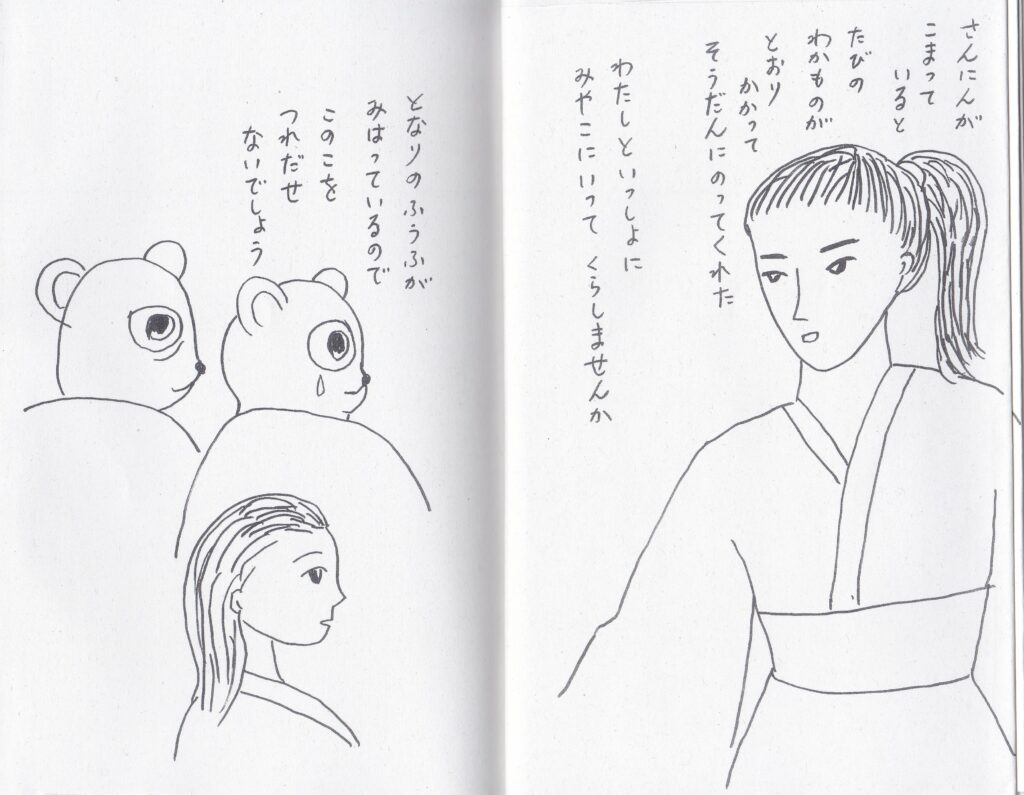 さんにんが
こまって
いると
たびの
わかものが
とおり
かかって
そうだんにのってくれた
わたしといっしょに
みやこにいって くらしませんか
となりのふうふが
みはっているので
このこを
つれだせ
ないでしょう